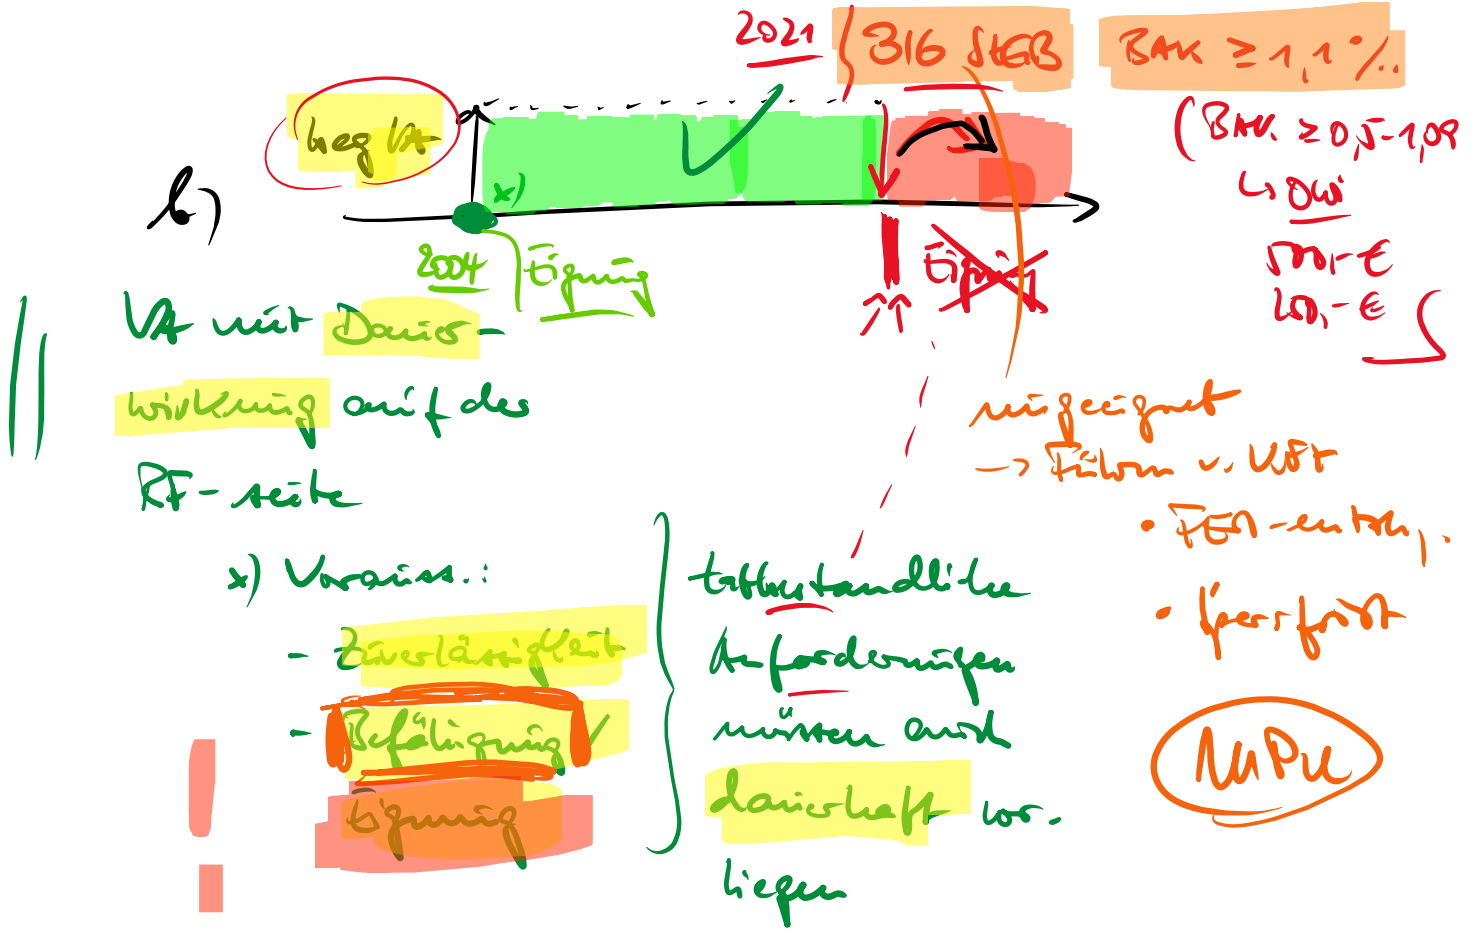 2021 § 316 StGB BAK ≥ 1,1 ‰
(BAK ≥ 0,5-1,09
↳ OWi
500,- €
250,- €
beg VA
b)
x)
2004 Eignung
Eignung
VA mit Dauer-
wirkung auf der
RF-seite
x) Vorauss.:
- Zuverlässigkeit
- Befähigung ✓
Eignung
tatbestandliche
Anforderungen
müssen auch
dauerhaft vor-
liegen
ungeeignet
-> Führen v. Kfz
• FE-entz.
• Sperrfrist
MPU